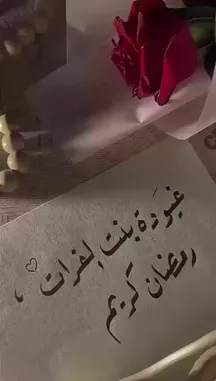 غيورة بنت الفرات ♡
رمضان كريم